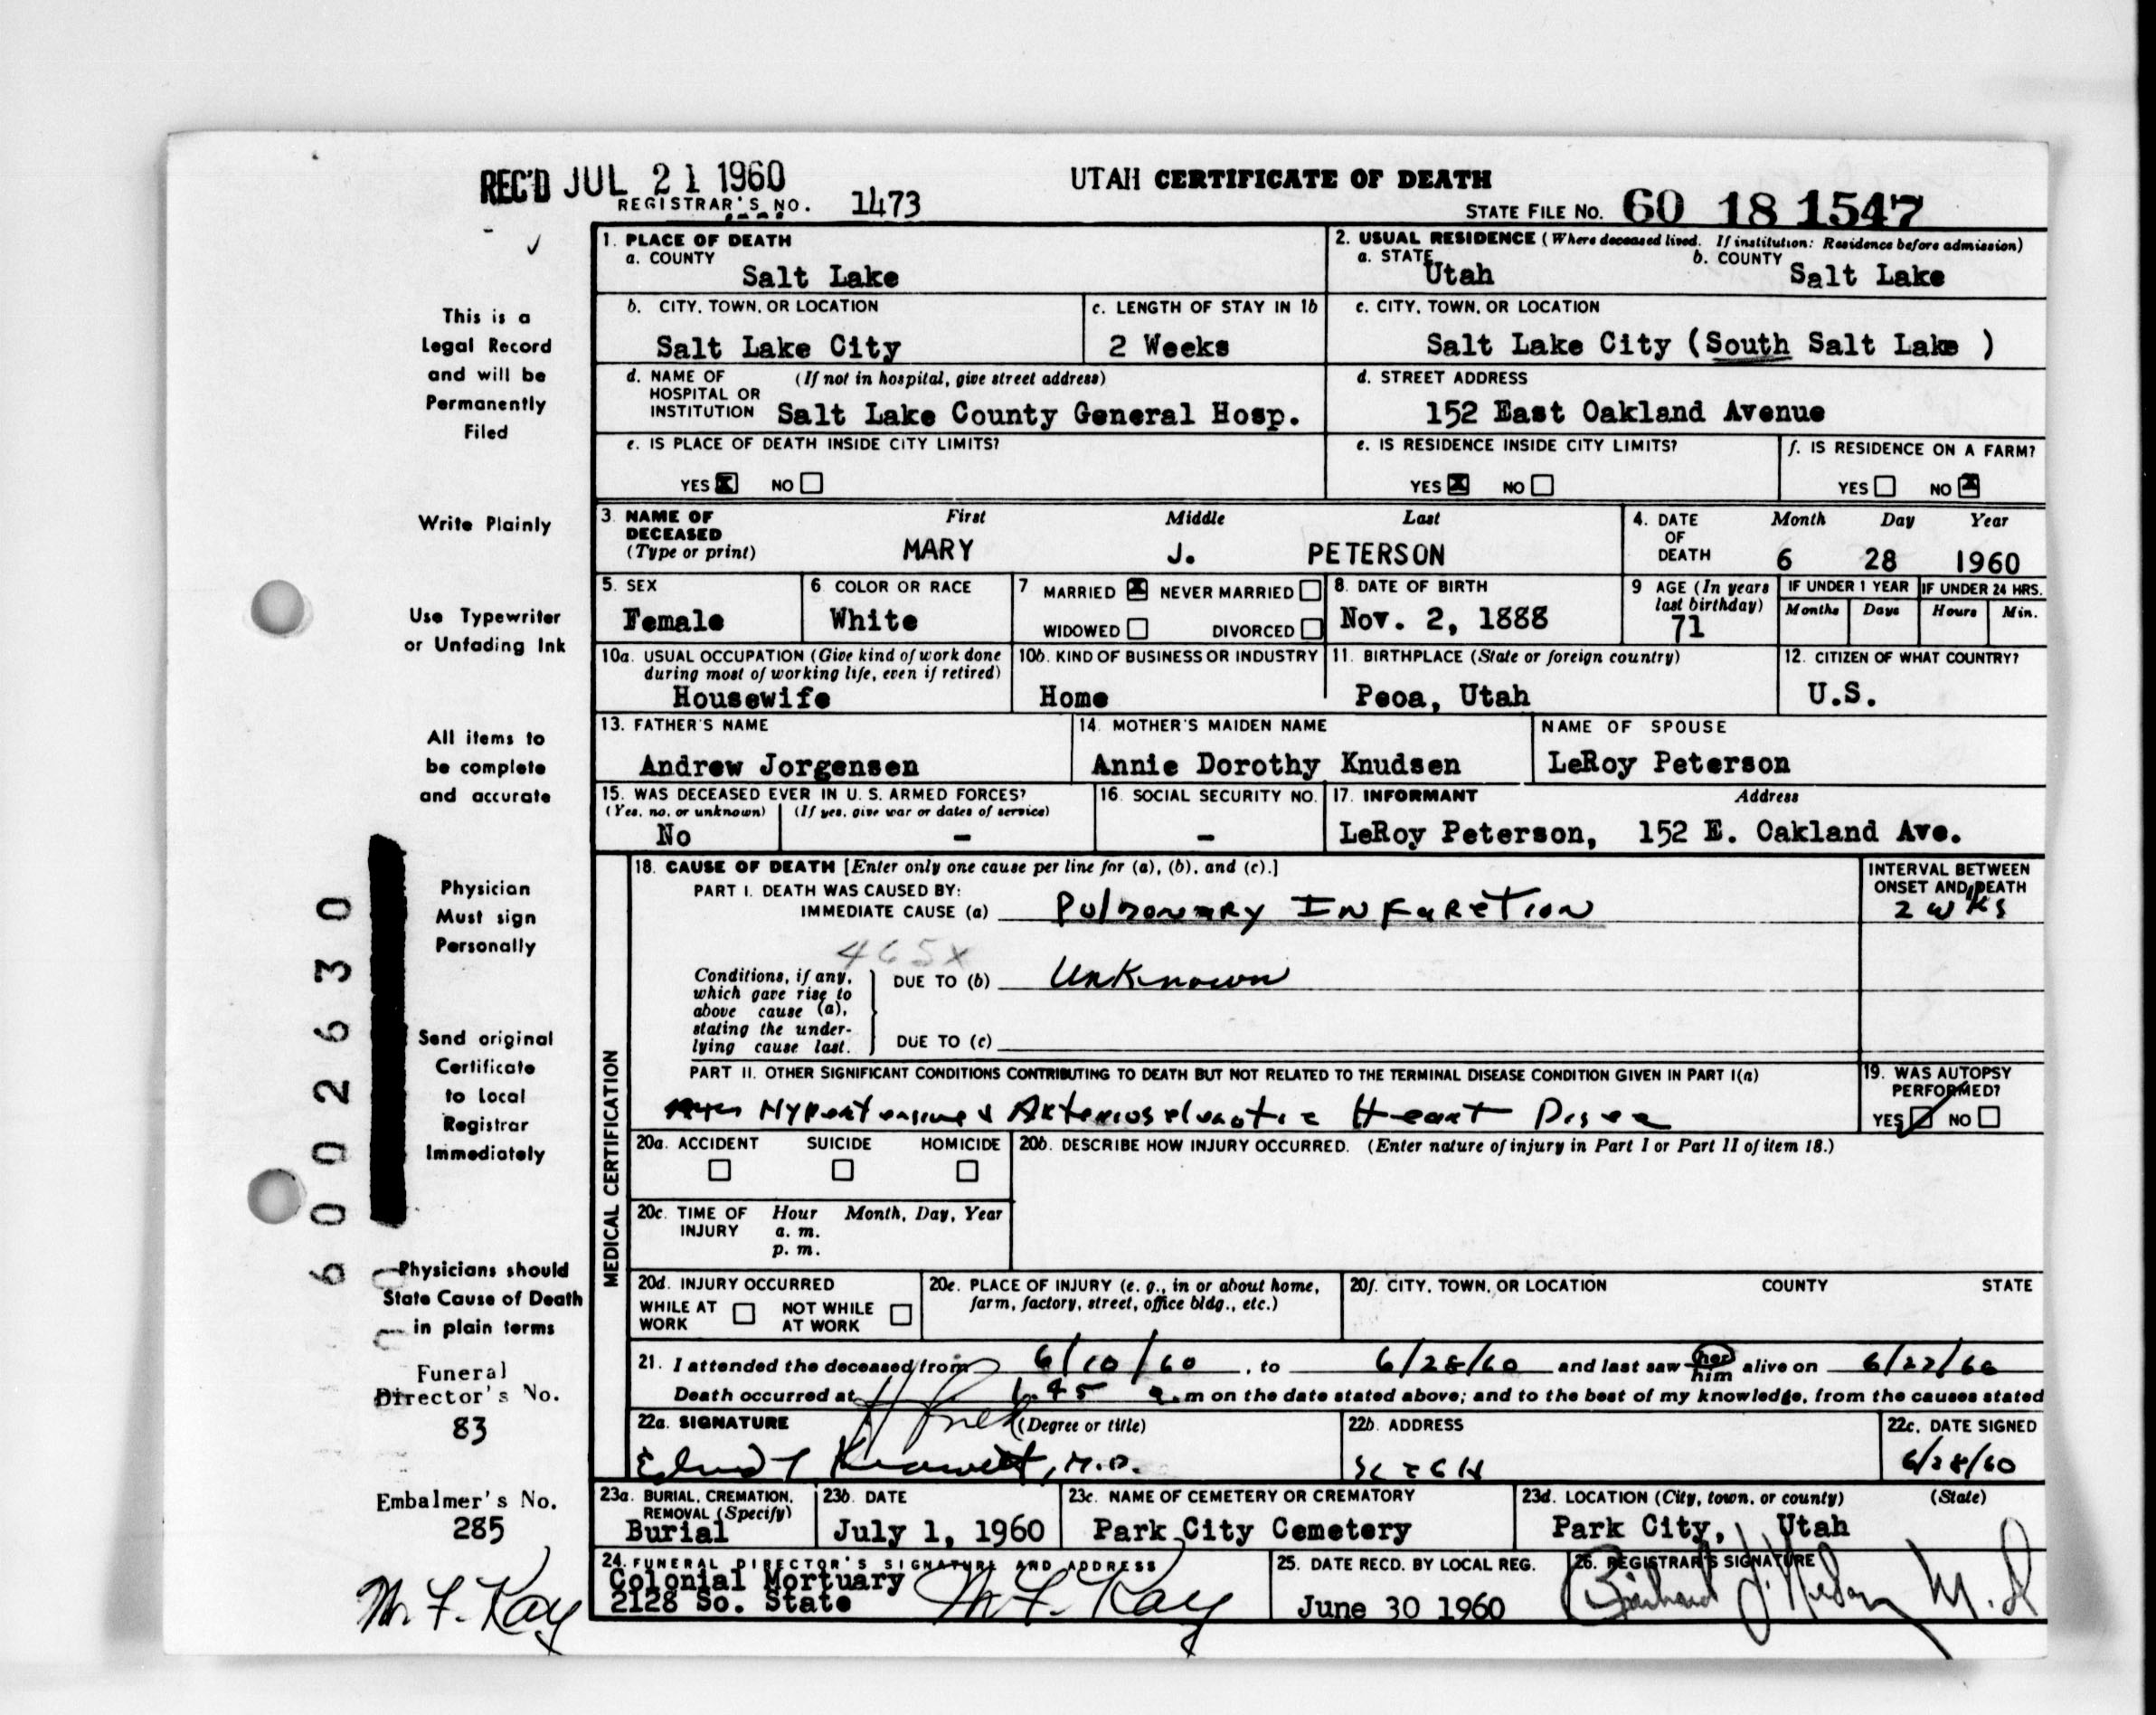 REC'D JUL 21 1960
UTAH CERTIFICATE OF DEATH
REGISTRAR'S NO. 1473
STATE FILE NO. 60 18 1547
1. PLACE OF DEATH
a. COUNTY
Salt Lake
2. USUAL RESIDENCE (Where deceased lived. If institution: Residence before admission)
a. STATE Utah b. COUNTY Salt Lake
b. CITY, TOWN, OR LOCATION
Salt Lake City
c. LENGTH OF STAY IN 1b
2 Weeks
c. CITY, TOWN, OR LOCATION
Salt Lake City (South Salt Lake )
d. NAME OF HOSPITAL OR INSTITUTION (If not in hospital, give street address)
Salt Lake County General Hosp.
d. STREET ADDRESS
152 East Oakland Avenue
e. IS PLACE OF DEATH INSIDE CITY LIMITS?
YES X NO
e. IS RESIDENCE INSIDE CITY LIMITS?
YES X NO
f. IS RESIDENCE ON A FARM?
YES NO X
3. NAME OF DECEASED (Type or print)
First Middle Last
MARY J. PETERSON
4. DATE OF DEATH
Month Day Year
6 28 1960
5. SEX
Female
6 COLOR OR RACE
White
7 MARRIED X NEVER MARRIED
WIDOWED DIVORCED
8. DATE OF BIRTH
Nov. 2, 1888
9 AGE (In years last birthday)
71
IF UNDER 1 YEAR
Months Days
IF UNDER 24 HRS.
Hours Min.
10a. USUAL OCCUPATION (Give kind of work done during most of working life, even if retired)
Housewife
10b. KIND OF BUSINESS OR INDUSTRY
Home
11. BIRTHPLACE (State or foreign country)
Peoa, Utah
12. CITIZEN OF WHAT COUNTRY?
U.S.
13. FATHER'S NAME
Andrew Jorgensen
14. MOTHER'S MAIDEN NAME
Annie Dorothy Knudsen
NAME OF SPOUSE
LeRoy Peterson
15. WAS DECEASED EVER IN U. S. ARMED FORCES?
(Yes, no, or unknown) (If yes, give war or dates of service)
No -
16. SOCIAL SECURITY NO.
-
17. INFORMANT Address
LeRoy Peterson, 152 E. Oakland Ave.
MEDICAL CERTIFICATION
18. CAUSE OF DEATH [Enter only one cause per line for (a), (b), and (c).]
PART I. DEATH WAS CAUSED BY:
IMMEDIATE CAUSE (a) Pulmonary Infarction
INTERVAL BETWEEN ONSET AND DEATH
2 wks
465X
Conditions, if any, which gave rise to above cause (a), stating the underlying cause last.
DUE TO (b) Unknown
DUE TO (c)
PART II. OTHER SIGNIFICANT CONDITIONS CONTRIBUTING TO DEATH BUT NOT RELATED TO THE TERMINAL DISEASE CONDITION GIVEN IN PART I(a)
Heart
19. WAS AUTOPSY PERFORMED?
YES NO
20a. ACCIDENT SUICIDE HOMICIDE
20b. DESCRIBE HOW INJURY OCCURRED. (Enter nature of injury in Part I or Part II of item 18.)
20c. TIME OF INJURY Hour Month, Day, Year
a. m.
p. m.
20d. INJURY OCCURRED
WHILE AT WORK NOT WHILE AT WORK
20e. PLACE OF INJURY (e. g., in or about home, farm, factory, street, office bldg., etc.)
20f. CITY, TOWN, OR LOCATION COUNTY STATE
21. I attended the deceased from 6/10/60, to 6/28/60 and last saw her him alive on
Death occurred at m on the date stated above; and to the best of my knowledge, from the causes stated
22a. SIGNATURE (Degree or title)
M.D.
22b. ADDRESS
22c. DATE SIGNED
6/28/60
23a. BURIAL, CREMATION, REMOVAL (Specify)
Burial
23b. DATE
July 1, 1960
23c. NAME OF CEMETERY OR CREMATORY
Park City Cemetery
23d. LOCATION (City, town, or county) (State)
Park City, Utah
24. FUNERAL DIRECTOR'S SIGNATURE AND ADDRESS
Colonial Mortuary
2128 So. State
M. F. Kay
25. DATE RECD. BY LOCAL REG.
June 30 1960
26. REGISTRAR'S SIGNATURE
This is a
Legal Record
and will be
Permanently
Filed
Write Plainly
Use Typewriter
or Unfading Ink
All items to
be complete
and accurate
Physician
Must sign
Personally
Send original
Certificate
to Local
Registrar
Immediately
Physicians should
State Cause of Death
in plain terms
Funeral
Director's No.
83
Embalmer's No.
285
M. F. Kay
6002630